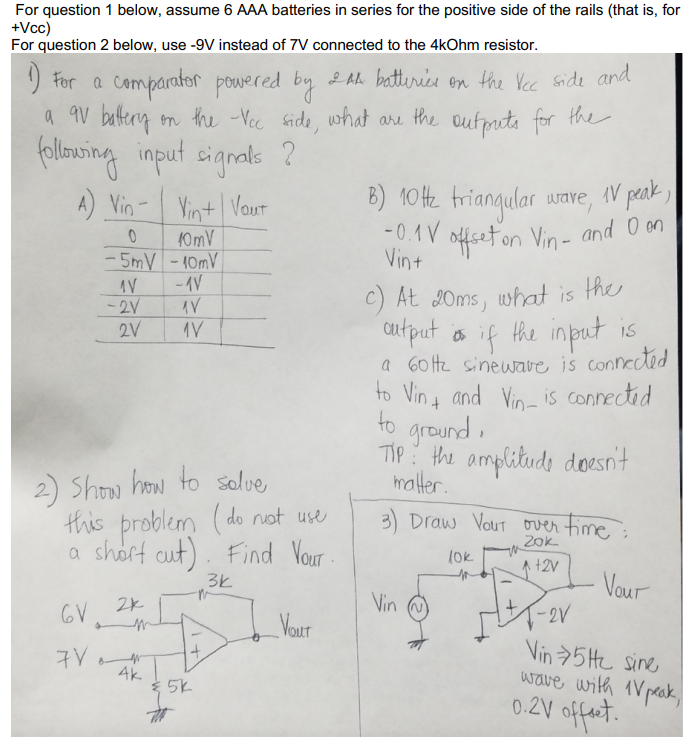 For question 1 below, assume 6 AAA batteries in series for the positive side of the rails (that is, for
+Vcc)
For question 2 below, use -9V instead of 7V connected to the 4kOhm resistor.
1) For a comparator powered by 2 AA batteries on the Vcc side and
a 9V battery on the -Vcc side, what are the outputs for the
following input signals ?
A) Vin- Vin+ Vout
0 10mV
-5mV -10mV
1V -1V
-2V 1V
2V 1V
B) 10Hz triangular wave, 1V peak,
-0.1V offset on Vin- and 0 on
Vin+
C) At 20ms, what is the
output if the input is
a 60Hz sinewave is connected
to Vin+ and Vin- is connected
to ground.
TIP: the amplitude doesn't
matter.
2) Show how to solve
this problem (do not use
a short cut). Find Vout.
3k
6V 2k
Vout
- +
7V 4k
5k
3) Draw Vout over time:
20k
10k
+2V
Vin
- +
Vout
-2V
Vin → 5Hz sine
wave with 1V peak,
0.2V offset.